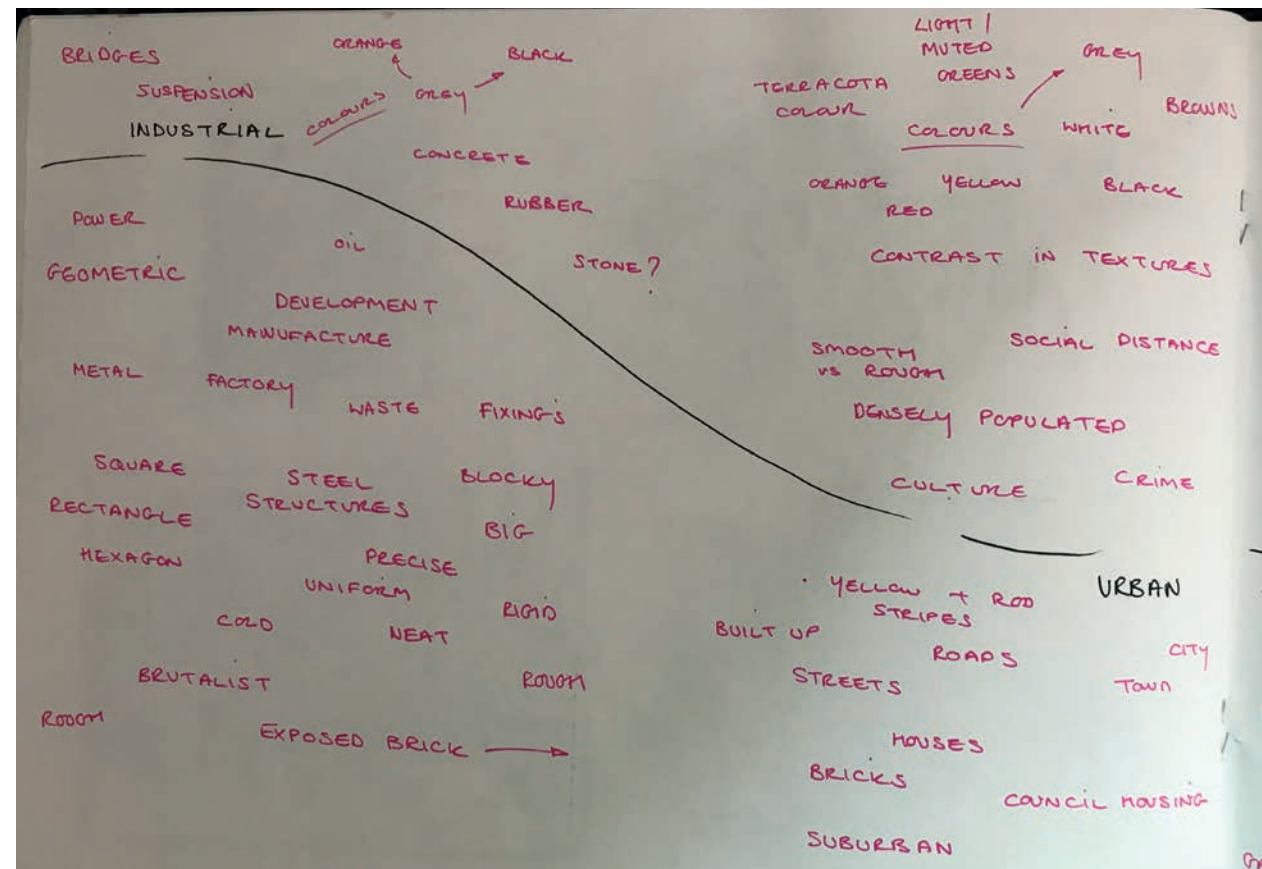 BRIDGES
SUSPENSION
INDUSTRIAL
COLOURS
ORANGE
GREY
BLACK
CONCRETE
RUBBER
STONE?
POWER
OIL
GEOMETRIC
DEVELOPMENT
MANUFACTURE
METAL
FACTORY
WASTE
FIXING'S
SQUARE
STEEL
STRUCTURES
BLOCKY
RECTANGLE
BIG
HEXAGON
PRECISE
UNIFORM
RIGID
COLD
NEAT
BRUTALIST
ROUGH
ROUGH
EXPOSED BRICK
LIGHT /
MUTED
GREENS
GREY
TERRACOTA
COLOUR
BROWNS
COLOURS
WHITE
ORANGE
YELLOW
BLACK
RED
CONTRAST IN TEXTURES
SOCIAL DISTANCE
SMOOTH
VS ROUGH
DENSELY POPULATED
CULTURE
CRIME
URBAN
YELLOW + ROD
STRIPES
BUILT UP
ROADS
CITY
STREETS
TOWN
HOUSES
BRICKS
COUNCIL HOUSING
SUBURBAN